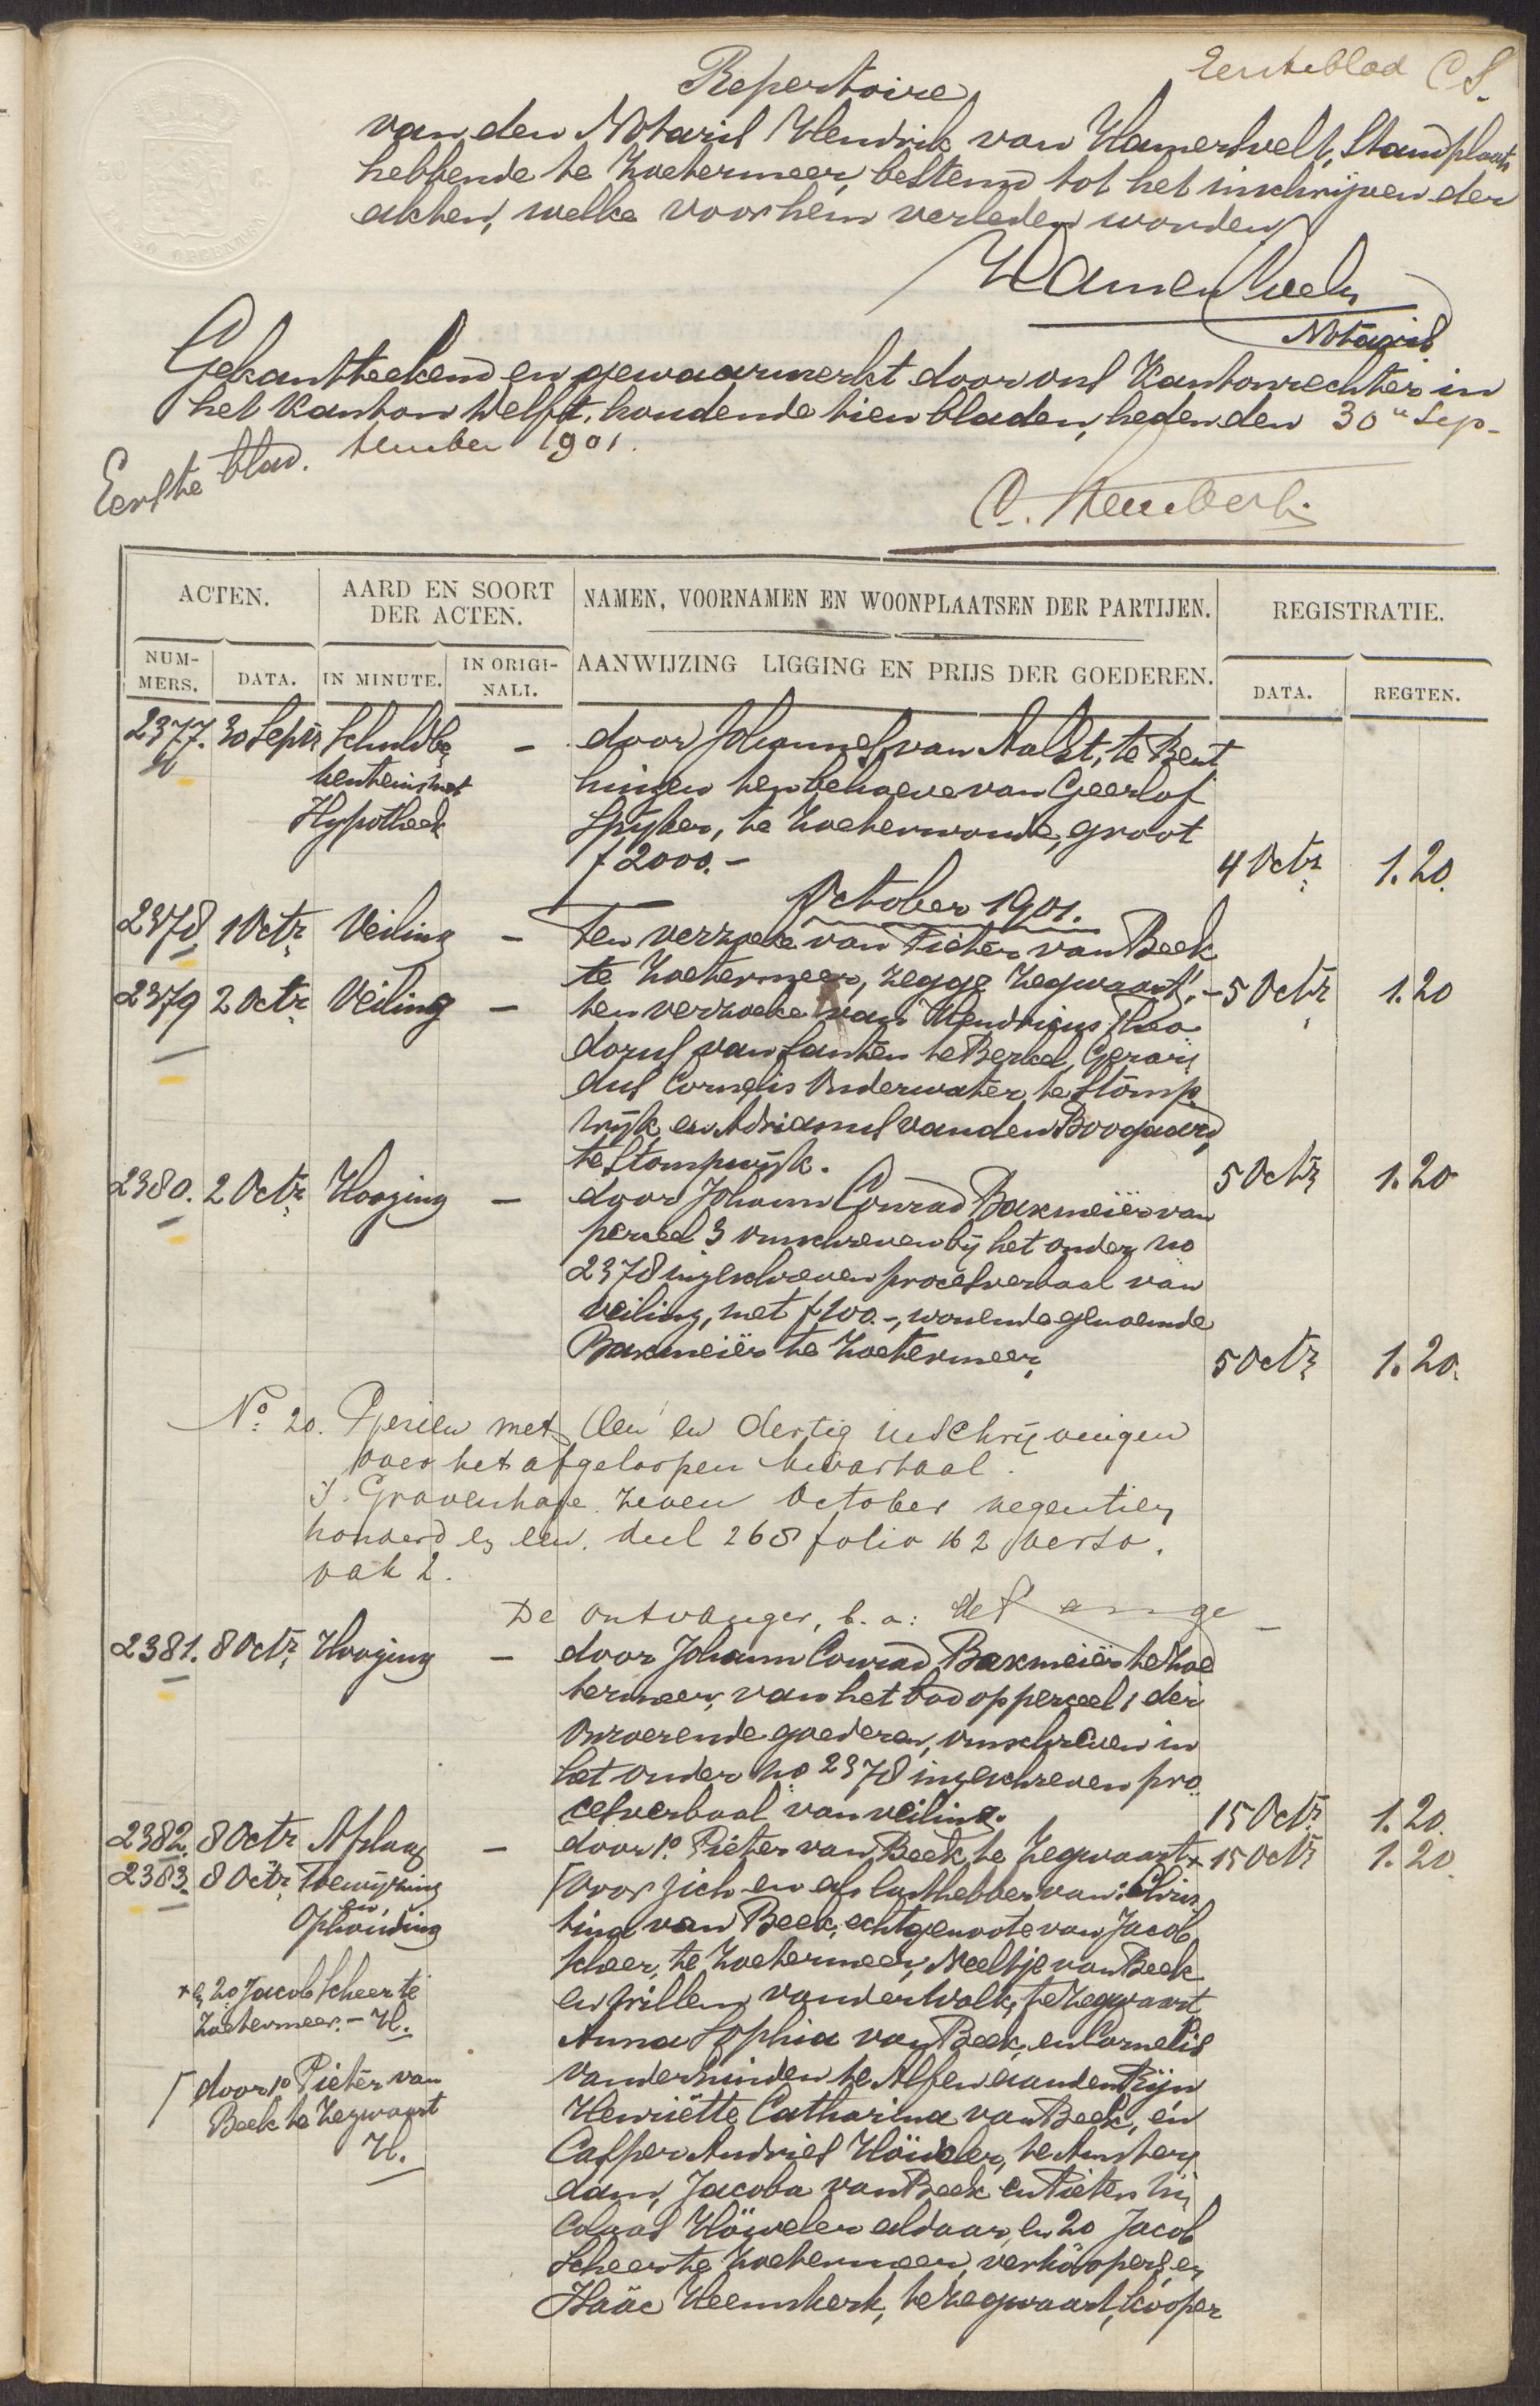 Eersteblad CS.
Repertoire
van den Notaris Hendrik van Hamersvelt, Standplaats
hebbende te Zoetermeer, bestemd tot het inschrijven der
akten, welke voor hem verleden worden
Hamersvelt
Notaris
Gekantteekend en gewaarmerkt door ons Kantonrechter in
het Kanton Delft, houdende tien bladen, heden den 30n Sep-
tember 1901.
Eerste blad.
ACTEN.
AARD EN SOORT
DER ACTEN.
NAMEN, VOORNAMEN EN WOONPLAATSEN DER PARTIJEN.
REGISTRATIE.
NUM-
MERS.
DATA.
IN MINUTE.
IN ORIGI-
NALI.
AANWIJZING LIGGING EN PRIJS DER GOEDEREN.
DATA.
REGTEN.
2377. 30 Septr Schuldbe - door Johannes van Aalst, te Bent
kentenis met huizen ten behoeve van Geerlof
Hypotheek Spijker, te Zoeterwoude, groot
f 2000.- 4 Octr 1.20.
October 1901.
2378 1 Octr Veiling - Ten verzoeke van Pieter van Beek
te Zoetermeer, zegge Zegwaart, - 5 Octr 1.20
2379 2 Octr Veiling - ten verzoeke van Hendricus Theo
dorus van Santen te Berkel, Gerar
dus Cornelis Onderwater, te Stomp
wijk en Adrianus van den Boogaard,
te Stompwijk. 5 Octr 1.20
2380. 2 Octr Hooging - door Johann Conrad Baxmeiër van
perceel 3 omschreven bij het onder no
2378 ingeschreven procesverbaal van
veiling, met f 100.-, wonende genoemde
Baxmeiër te Zoetermeer, 5 Octr 1.20.
No. 20. Gezien met een en dertig inschrijvingen
over het afgeloopen kwartaal.
's Gravenhage zeven October negentien
honderd en een. deel 268 folio 162 verso.
vak 2.
De Ontvanger, b. a:
2381. 8 Octr Hooging - door Johann Conrad Baxmeiër te Zoe
termeer, van het bod op perceel 1 der
onroerende goederen, omschreven in
het onder no 2378 ingeschreven pro
cesverbaal van veiling. 15 Octr 1.20.
2382. 8 Octr Afslag - door 1o. Pieter van Beek, te Zegwaart x 15 Octr 1.20
2383. 8 Octr Toewijzing voor zich en als lasthebber van: Chris
en
Ophouding tina van Beek, echtgenoote van Jacob
Scheer, te Zoetermeer, Neeltje van Beek
x en 2o Jacob Scheer te en Willem van der Valk, te Zegwaart
Zoetermeer. - H. Anna Sophia van Beek, en Cornelis
van der Linden te Alfen aan den Rijn
door 1o Pieter van
Beek te Zegwaart Henriëtte Catharina van Beek, en
H. Casper Andries Höweler, te Amster
dam, Jacoba van Beek en Pieter Ni
colaas Höweler aldaar, en 2o Jacob
Scheer te Zoetermeer, verkoopers, en
Isaäc Heemskerk, te Zegwaart, kooper